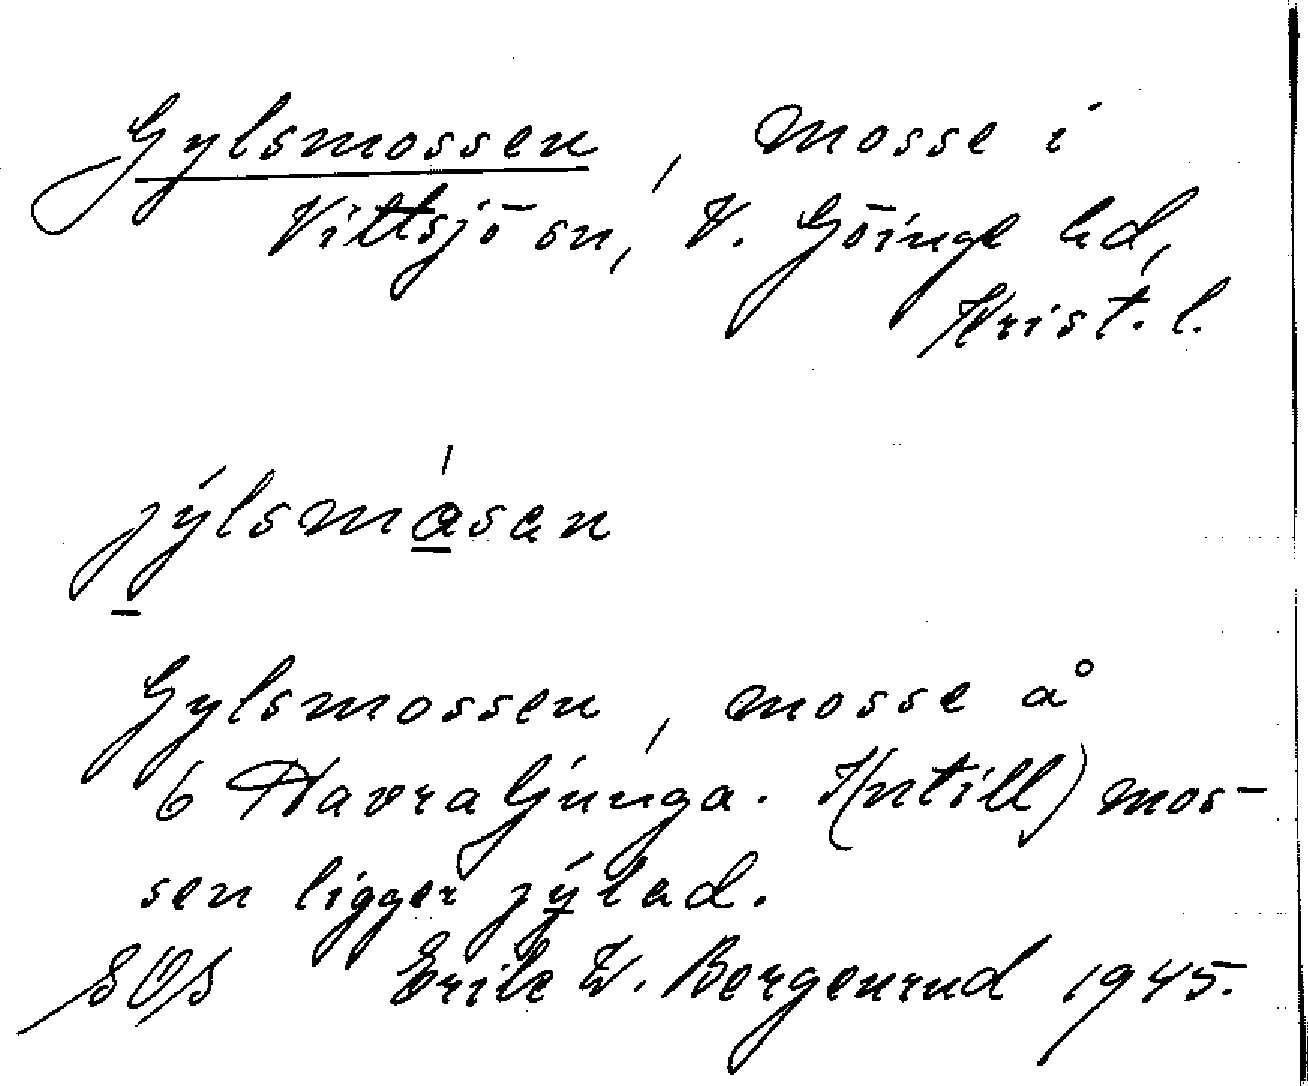 Gylsmossen, mosse i
Vittsjö sn, V. Göinge hd,
Krist. l.
jýlsmåsan
Gylsmossen, mosse å
6 Havraljúnga. I(ntill) mos-
sen ligger jýlad.
SOS Erik W. Bergenrud 1945.